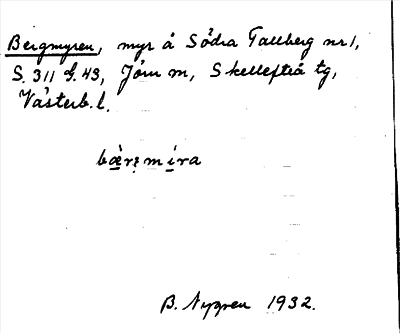 Bergmyren, myr å Södra Tallberg nr 1,
S. 311 d. 43, Jörn m, Skellefteå tg,
Västerb. l.
bæ̀rʒmíra
B. Nygren 1932.